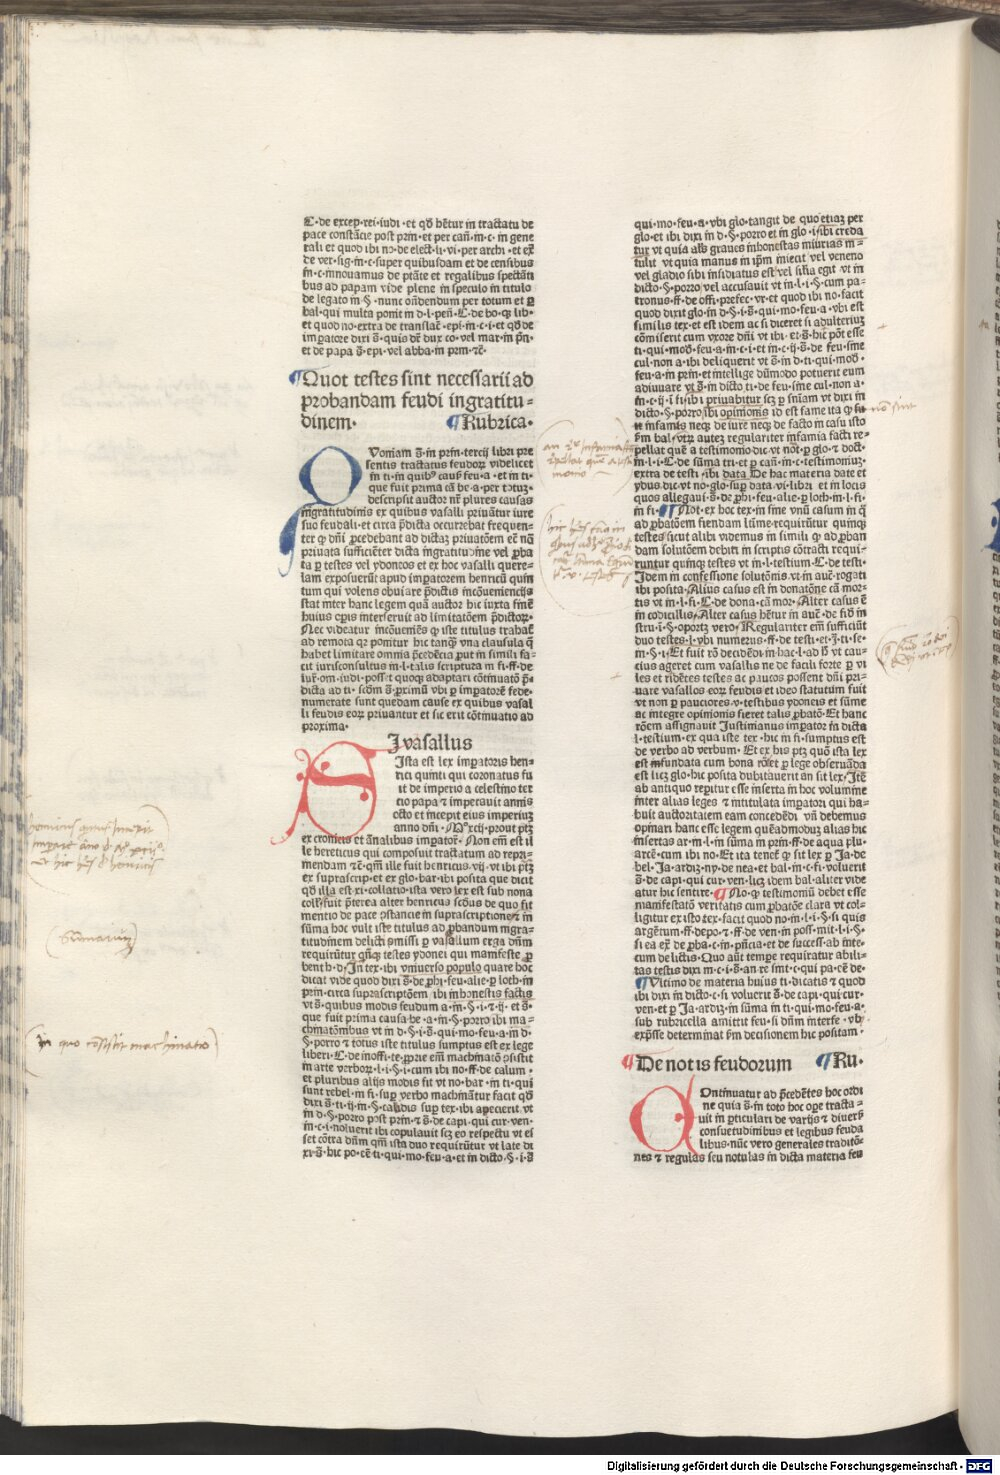 C·de excep·rei·iudi·et qđ hētur in tractatu de
pace constācie post prin·et per can̄·in·c·in gene
rali et quod ibi no·de elect·li·vi·per archi·et ex̄
de ver·sig·in·c·super quibusdam et de censibus
in·c·innouamus de ptāte et regalibus spectāti
bus ad papam vide plene in speculo in titulo
de legato in·§·nunc on̄dendum per totum et ꝑ
bal·qui multa ponit in d·l·pen̄·C·de bo·q̄ lib·
et quod no·extra de translat̄·epi·in·c·i·et qđ de
impatore dixi s̄·quis dē dux co·vel mar·in pn̄·
et de papa s̄·epi·vel abba·in prin·⁊c̄·
¶Quot testes sint necessarii ad
probandam feudi ingratitu=
dinem· ¶Rubrica·
QVoniam s̄·in prin·tercij libri pre
sentis tractatus feudoꝝ videlicet
in ti·in quibꝰ cauẜ feu·a·et in ti·
que fuit prima cā be·a·per totuꝫ·
descripsit auctor nr̄ plures causas
ingratitudinis ex quibus vasalli priuātur iure
suo feudali·et circa p̄dicta occurrebat frequen=
ter ꝙ dn̄i ꝓcedebant ad dictaꝫ priuatōem et̄ nō
priuata sufficiēter dicta ingratitudine vel ꝓba
ta ꝑ testes vel ydoneos et ex hoc vasalli quere=
lam exposuerūt apud impatorem henricū quin
tum qui volens obuiare p̄dictis incōuenienciis
stat inter hanc legem quā auctor hic iuxta finē
huius opis interseruit ad limitatōem p̄dictoꝝ·
Nec videatur incōueniēs ꝙ iste titulus trahat̄
ad remota qꝛ ponitur hic tanq̄ vna clausula q̄
habet limitare omnia p̄cedēcia ꝓut in simili fa=
cit iurisconsultus in·l·talis scriptura in fi·ff·de
iur̄·om·iudi·posset quoqꝫ adaptari cōtinuatō p̄=
dicta ad ti·scdm s̄·ꝓximū vbi ꝑ impatorē fede=
numerate sunt quedam cause ex quibus vasal
li feudis eoꝝ priuantur et sic erit cōtinuatio ad
proxima·
SI vasallus
Ista est lex impatoris hen=
rici quinti qui coronatus fu
it de imperio a celestino ter
cio papa ⁊ imperauit annis
octo et incepit eius imperiuꝫ
anno dn̄i·M°xcij·prout ptꝫ
ex cronicis et ān̄alibus impatoꝝ·Non em̄ est il
le hereticus qui composuit tractatum ad repri=
mendam ⁊c̄·qm̄ ille fuit henricus·vij·vt ibi ptꝫ
ex suprascrip·et ex glo·bar·ibi posita que dicit
qđ illa est·xi·collatio·ista vero lex est sub nona
coll·fuit p̄terea alter henricus scd̄us de quo fit
mentio de pace ꝯstancie in suprascriptione⁊ in
sūma hoc vult iste titulus ad ꝓbandum ingra=
titudinem delicti ꝯmissi ꝑ vasallum erga dn̄m
requirūtur quinqꝫ testes ydonei qui manifeste ꝓ
bent h·d·In tex·ibi vniuerso populo quare hoc
dicat vide quod dixi s̄·de ꝓhi·feu·alie·ꝑ loth·in
prin·circa suprascriptōem·ibi inhonestis factis
vt s̄·quibus modis feudum a·in·§·i·⁊·ij·et s̄·
que fuit prima causa be·a·in·§·porro ibi ma=
chinatōnibus vt in d·§·i·s̄·qui·mo·feu·a·in·d·
§·porro ⁊ totus iste titulus sumptus est ex lege
liberi·C·de inoffi·te·ꝓprie em̄ machinatō ꝯsistit
in arte verboꝝ·l·i·§·i·cum ibi no·ff·de calum·
et pluribus alijs modis fit vt no·bar·in ti·qui
sunt rebel·in fi·suꝑ verbo machināntur facit qđ
dixi s̄·ti·ij·in·§·calidis suꝑ tex·ibi apecierit vt
in d·§·porro post prin·⁊ s̄·de capi·qui cur·ven·
in·c·i·noluerit ibi copulauit scꝫ eo respectu vt es
set cōtra dn̄m qm̄ ista duo requirūtur vt late di
xi·s̄·hic po·cē·ti·qui·mo·feu·a·et in dicto·§·i·s̄
qui·mo·feu·a·vbi glo·tangit de quo etiaꝫ per
glo·et ibi dixi in d·§·porro et in glo·i·sibi creda
tur vt quia als̄ graues inhonestas iniurias in=
tulit vt quia manus in ip̄m iniecit vel veneno
vel gladio sibi insidiatus est vel silia egit vt in
dicto·§·porro vel accusauit vt in·l·i·§·cum pa=
tronus·ff·de offi·prefec·vr·et quod ibi no·facit
quod dixit glo·in d·§·i·s̄·qui·mo·feu·a·vbi est
similis tex·et est idem ac si diceret si adulteriuꝫ
cōmiserit cum vxore dn̄i vt ibi·et·s̄·hic pōt esse
ti·qui·mod̄·feu·a·in·c·i·et in·c·ij·s̄·de feu·sine
cul·non a·ibi deliquerit vt s̄·in d·ti·qui·mod̄·
feu·a·in prin·et intellige dūmodo potuerit eum
adiuuare vt s̄·in dicto·ti·de feu·sine cul·non a·
in·c·ij·i·fi·sibi priuabitur scꝫ ꝑ sn̄iam vt dixi in
dicto·§·porro·sibi opinionis id est fame ita ꝙ sit
ne infamis necꝫ de iure necꝫ de facto in casu isto
ẜm bal·vtꝝ autez regulariter infamia facti re=
pellat quē a testimonio dic·vt not̄·ꝑ glo·⁊ doct·
in·l·i·C·de sūma tri·et ꝑ can̄·in·c·testimoniuꝫ·
extra de testi·sibi data De hac materia date et
ydus dic·vt no·glo·suꝑ data·vi·libri et in locis
quos allegaui·s̄·de ꝓhi·feu·alie·ꝑ loth·in·l·fi·
in fi·¶Not·ex hoc tex·in sine vnū casum in q̄
ad ꝓbatōem fiendam lūme requirūtur quinqꝫ
testes sicut alibi videmus in simili ꝙ ad ꝓban
dam solutōem debiti in scriptis cōtracti requi=
runtur quinqꝫ testes vt in·l·testium·C·de testi·
Idem in confessione solutōnis·vt in auc̄·rogati
ibi posita·Alius casus est in donatōne cā mor=
tis vt in·l·fi·C·de dona·cā mor·Alter casus ē
in codicillis·Alter casus hētur in auc̄·de fid̄ in
stru·i·§·oportꝫ vero·Regulariter em̄ sufficiūt
duo testes·l·vbi numerus·ff·de testi·et·J·ti·se=
in·§·i·Et fuit rō decidēdi in·hac·l·ad id̄ vt cau=
cius ageret cum vasallis ne de facili forte ꝑ vi
les et ridētes testes ac paucos possent dn̄i pri=
uare vasallos eoꝝ feudis et ideo statutum fuit
vt non ꝑ pauciores·v·testibus ydoneis et sūme
ac integre opinionis fieret talis ꝓbatō·Et hanc
rōem assignauit Justinianus imꝑator in dicta
l·testium·ex qua iste tex·hic in fi·sumptus est
de verbo ad verbum·Et ex his ptꝫ quō ista lex
est infundata cum bona rōe et ꝑ lege obseruāda
est licꝫ glo·hic posita dubitauerit an sit lex·Itē
ab antiquo reperitur esse inserta in hoc volumine
inter alias leges ⁊ intitulata impatori qui ha=
buit auctoritatem eam concedēdi vn̄ debemus
opinari hanc esse legem quēadmoduꝫ alias hic
insertas ar·in·l·in sūma in prin·ff·de aqua plu·
arcē·cum ibi no·Et ita tenet̄ ꝙ sit lex ꝑ Ja·de
bel·Ja·ardiꝫ·ny·de nea·et bal·in·c·fi·voluerit
s̄·de capi·qui cur·ven·licꝫ idem bal·aliter vide
atur hic sentire·¶No·ꝙ testimoniū debet esse
manifestatō veritatis cum ꝓbatōe clara vt col=
ligitur ex isto tex·facit quod no·in·l·i·§·si quis
argētum·ff·depo·⁊·ff·de ven·in poss·mit·l·i·§·
si ea ex̄·de ꝓba·c·in·pn̄cia·et de success·ab inte=
cum delictis·Quo aūt tempe requiratur abili=
tas testis dixi in·c·i·s̄·an re sint·c·qui pa·cē de=
¶Vltimo de materia huius ti·dicatis ⁊ quod
ibi dixi in dicto·c·si voluerit s̄·de capi·qui cur·
ven·et ꝑ Ja·ardiꝫ·in sūma in ti·qui·mo·feu·a·
sub rubricella amittit feu·si dn̄m interfe·vbi
exp̄sse determinat ẜm decisionem hic positam·
¶De notis feudorum ¶Ru·
COntinuatur ad p̄cedētes hoc ordi
ne quia s̄·in toto hoc oꝑe tracta=
uit in ꝑticulari de varijs ⁊ diuerẜ
consuetudinibus et legibus feuda
libus·nūc vero generales traditō=
nes ⁊ regulas seu notulas in dicta materia feu
in quo consistit machinatio
Digitalisierung gefördert durch die Deutsche Forschungsgemeinschaft - DFG